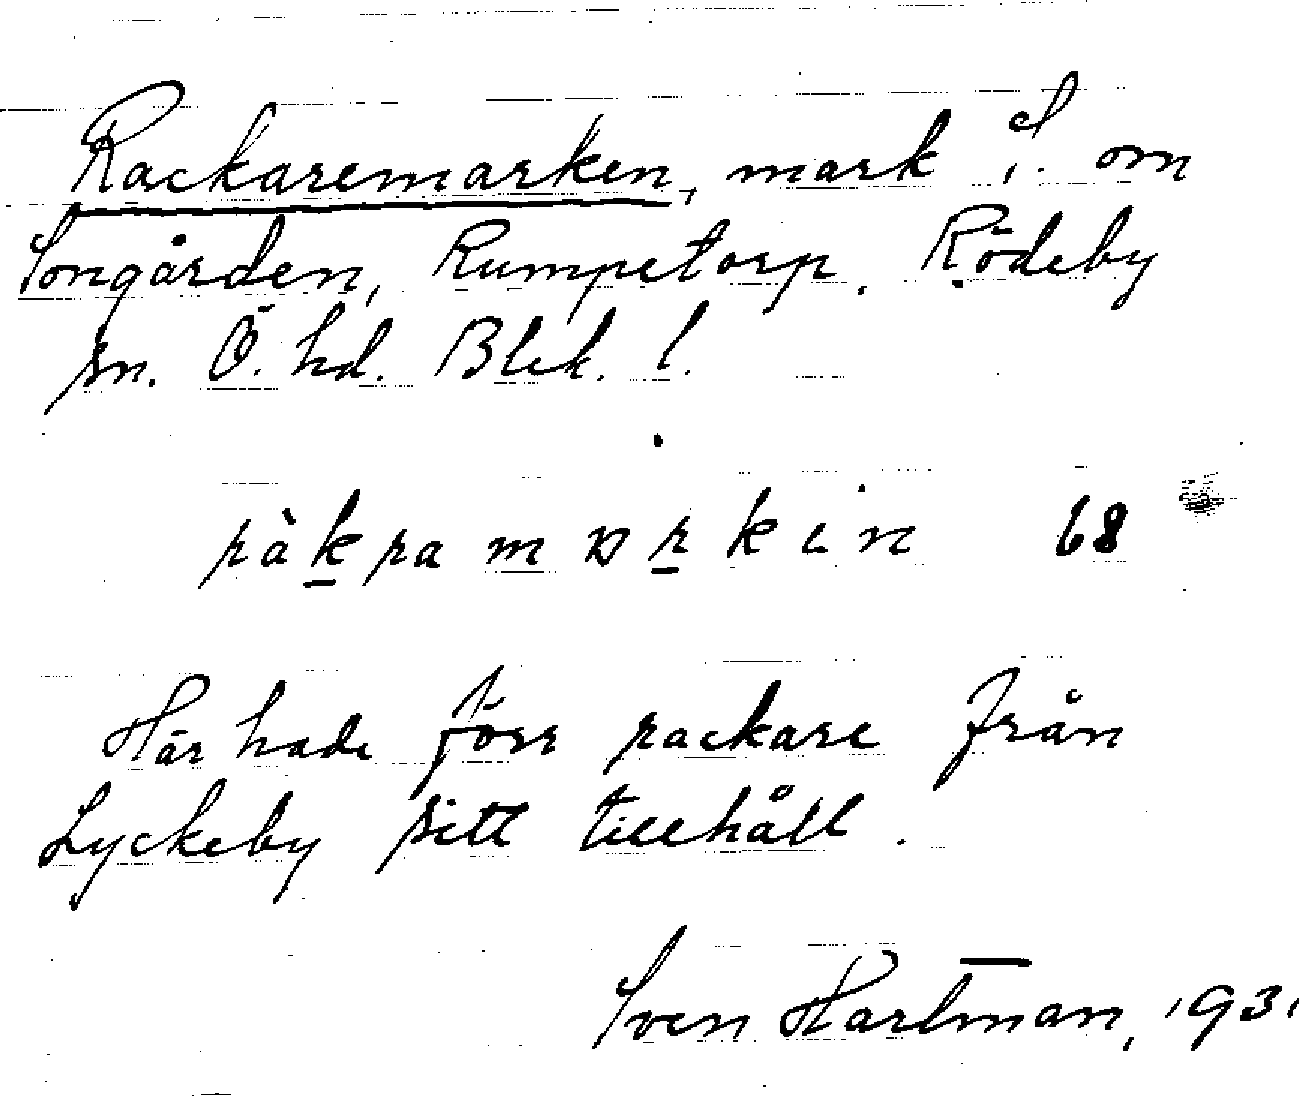 Rackaremarken, mark S. om
Songården, Rumpetorp. Rödeby
sn. Ö. hd. Blek. l.
ràkra m ɒ r k i n 68
Här hade förr rackare från
Lyckeby sitt tillhåll.
Sven Hartman, 1931